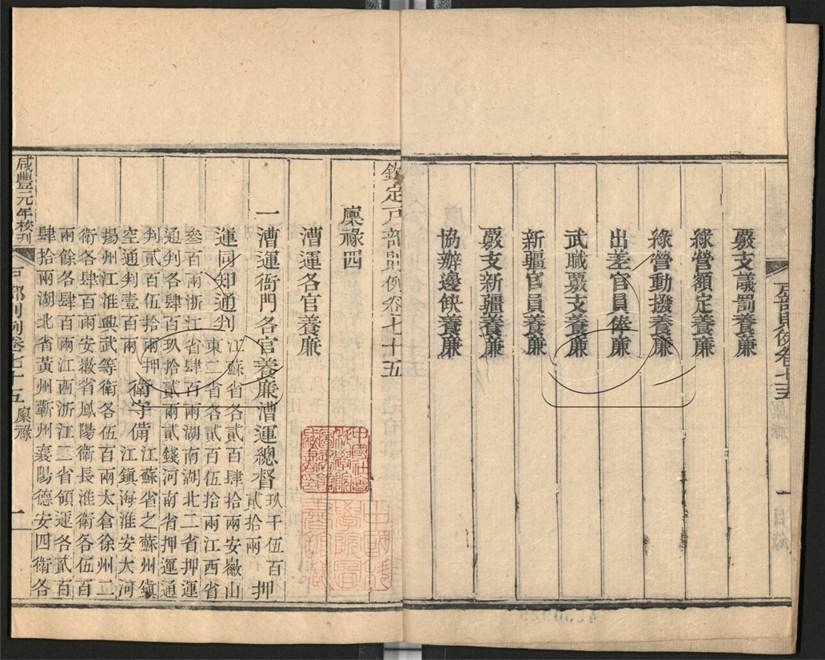 覈支議罰養廉
綠營額定養廉
綠營動撥養廉
出差官員俸廉
武職覈支養廉
新疆官員養廉
覈支新疆養廉
協辦邊俠養廉
欽定戶部則例卷七十五
廩祿四
漕運各官養廉
一漕運衙門各官養廉漕運總督玖千伍百貳拾兩押
運同知通判江蘇省各貳百肆拾兩安徽山
東二省各貳百伍拾兩江西省
叁百兩浙江省肆百兩湖南湖北二省押運
通判各肆百玖拾貳兩貳錢河南省押運通
判貳百伍拾兩押
空通判壹百兩衛守備江蘇省之蘇州鎮
江鎮海淮安大河
揚州江淮興武等衛各伍百兩太倉徐州二
衛各肆百兩安徽省鳳陽衛長淮衛各伍百
兩餘各肆百兩江西浙江二省領運各貳百
肆拾兩湖北省黃州蘄州襄陽德安四衛各
戶部則例卷七十五 廩祿 一
咸豐元年校刊